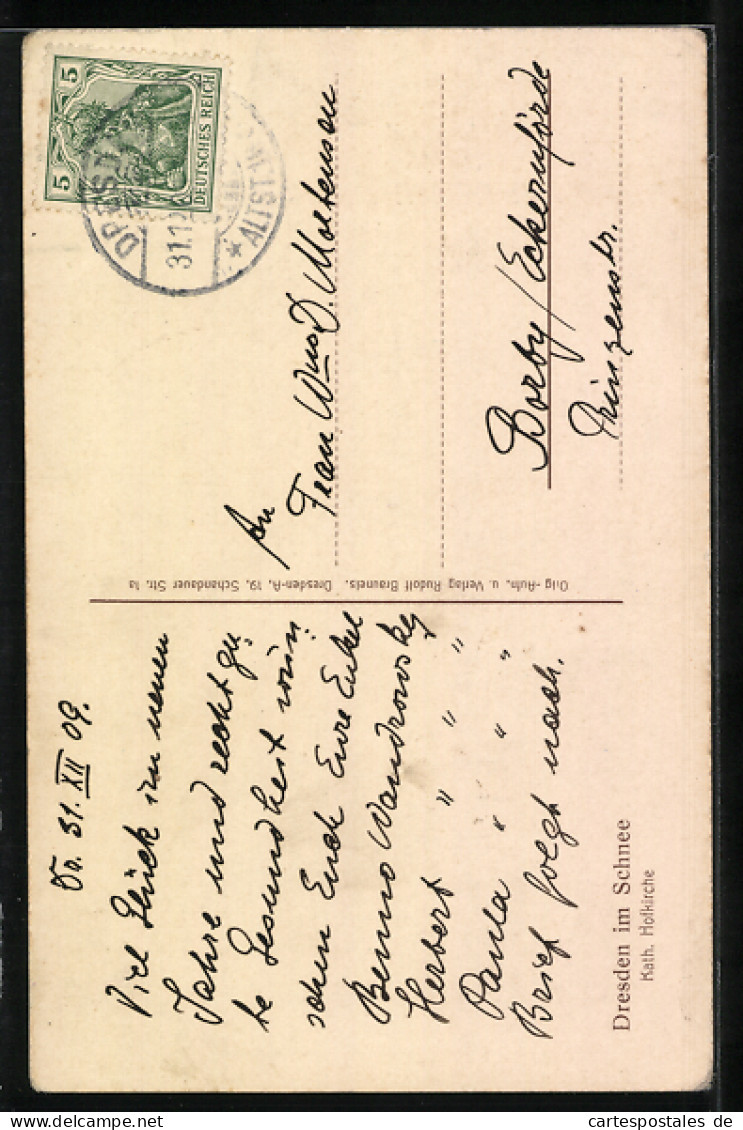 Dr. 31. XII 09.
Viel Glück im neuen
Jahre und recht gu-
te Gesundheit wün-
schen Euch Eure Enkel
Benno Wandrowsky
Herbert " "
Paula " "
Brief folgt nach.
Dresden im Schnee
Kath. Hofkirche
Orig.-Aufn. u. Verlag Rudolf Brauneis, Dresden-A. 19, Schandauer Str. 1a
5 5
DEUTSCHES REICH
31.12
* ALTST.
An
Frau Wwe D. Mortensen
Borby/Eckernförde
Prinzenstr.
cartespostales.de